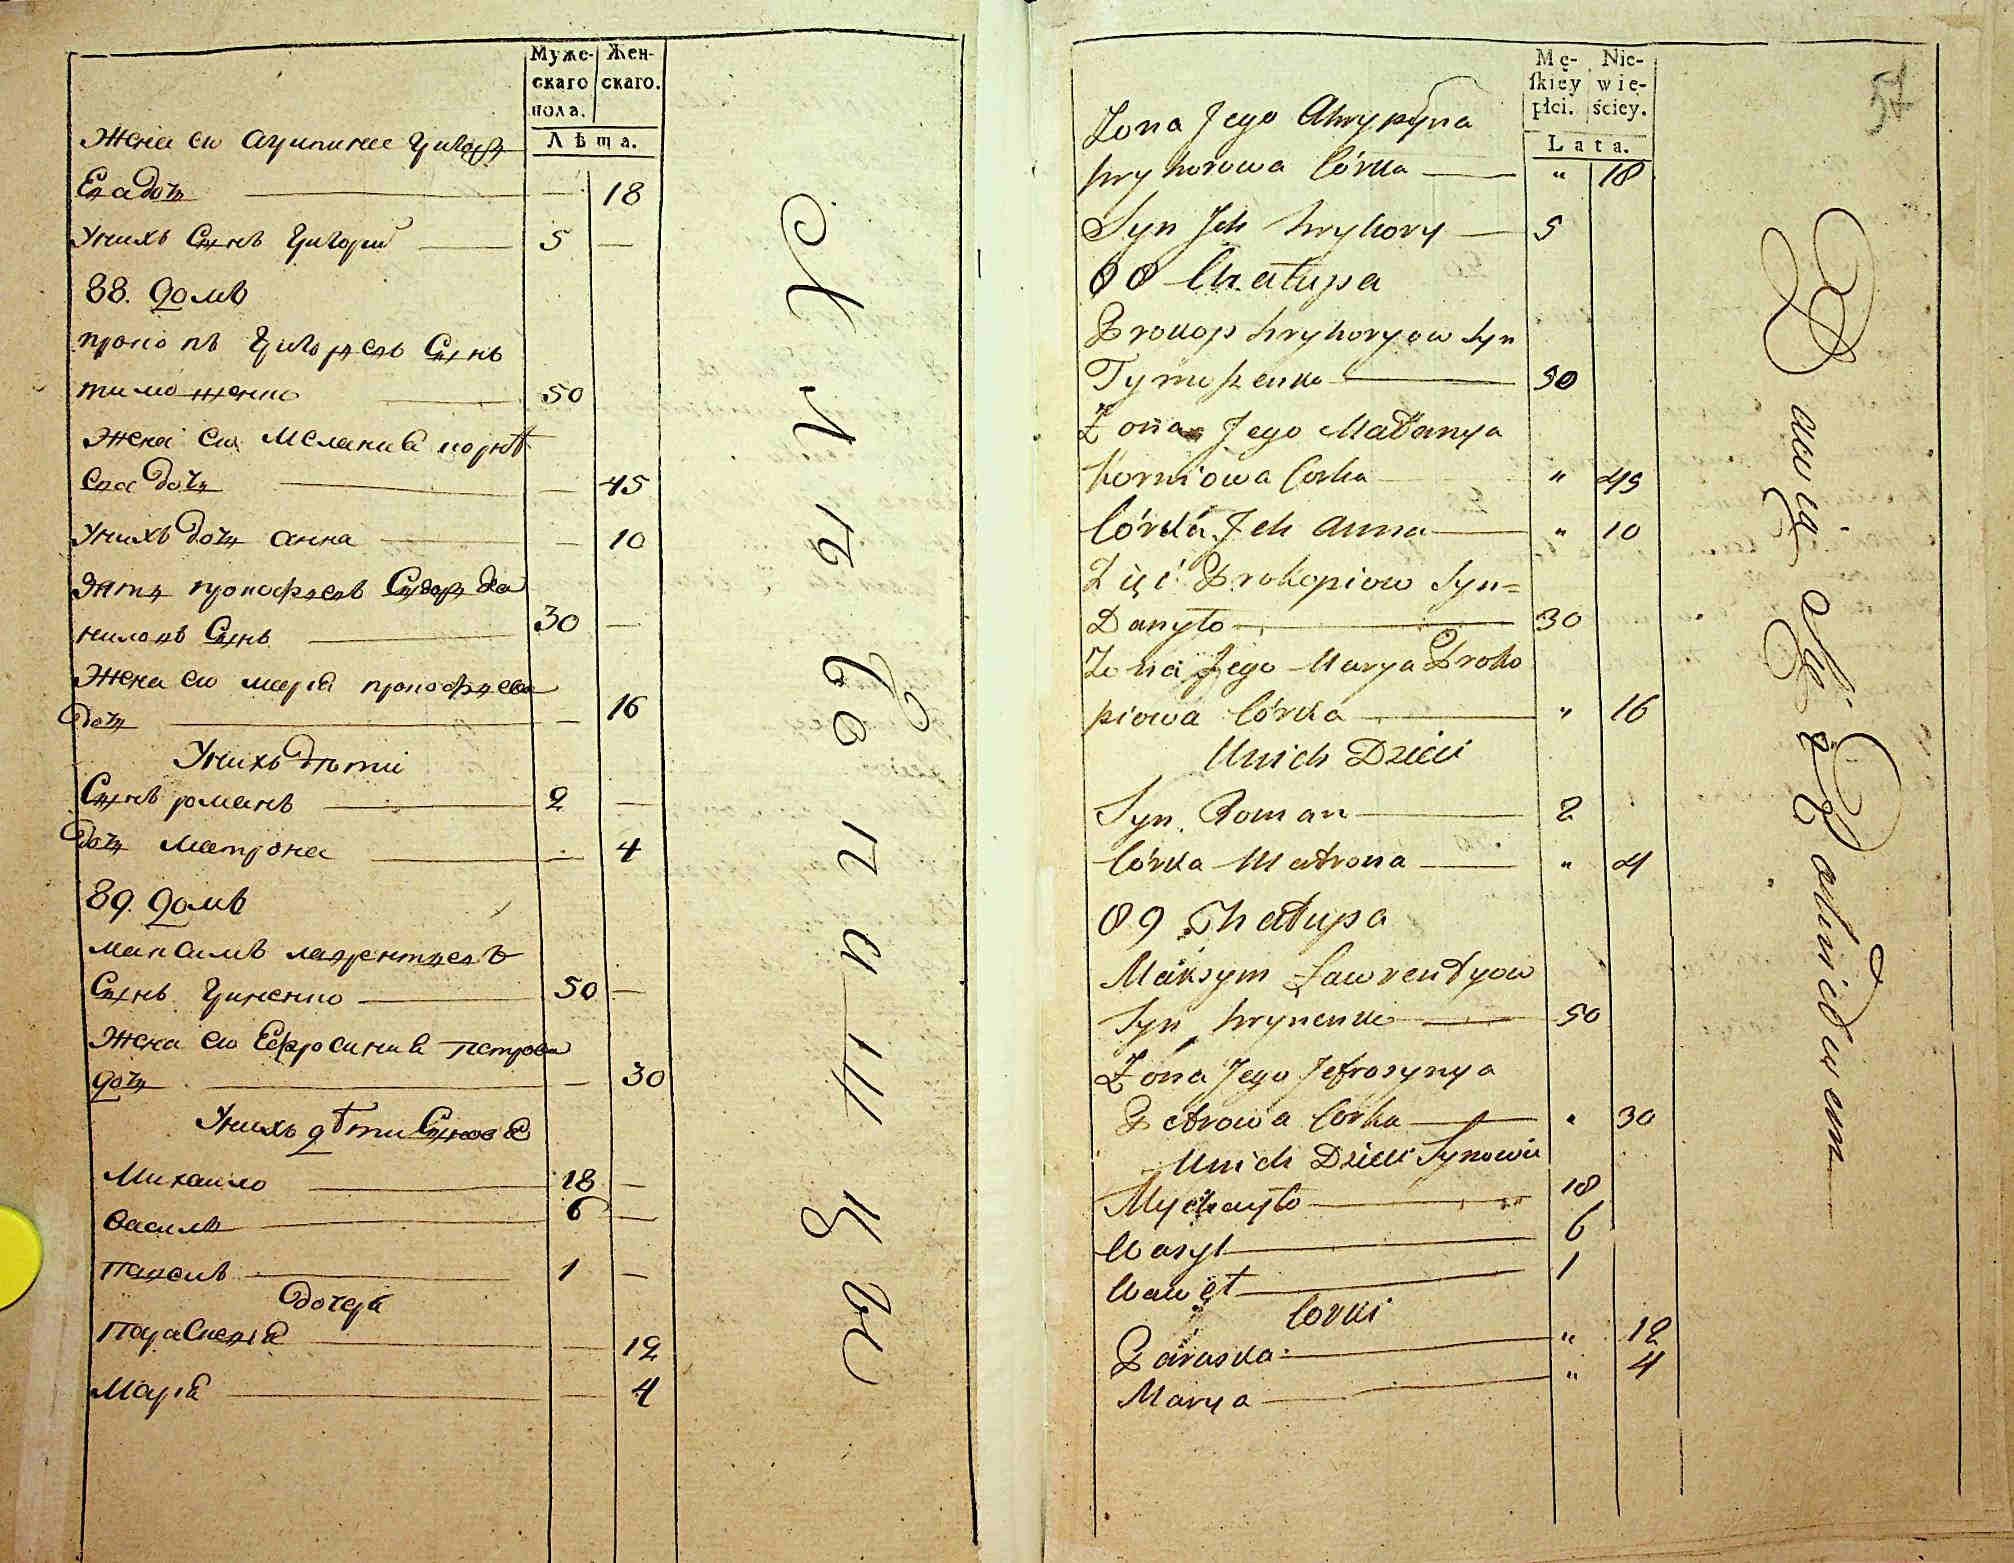 Муже-
скаго
пола.
Жен-
скаго.
Лѣта.
Жена ею Агрипина Григорь
Ева дочь — 18
Унихъ Сынъ Григорий 5 —
88. Домъ
прокопъ Григорьевъ Сынъ
тимошенко 50
Жена ею Меланиа корнѣ
Ева дочь — 45
Унихъ дочь анна — 10
Зять прокофьевъ Сидоръ Да
ниловъ Сынъ 30 —
Жена ею мариа прокофьева
дочь — 16
Унихъ дѣти
Сынъ романъ 2 —
дочь матрона — 4
89. Домъ
максимъ лаврентьевъ
Сынъ Гриненко 50 —
Жена ею Ефросиниа петрова
дочь — 30
Унихъ дѣти Сыновѣ
Михаило 18 —
василь 6 —
павелъ 1 —
дочери
Параскевиа — 12
Мариа — 4
57
Mę-
skiey
płci.
Nie-
wie-
ściey.
Lata.
Zona Jego Ahrypyna
hryhorowa Córka „ 18
Syn Jch hryhory 5
88 Chałupa
Prokop hryhoryow Syn
Tymoszenko 50
Żona Jego Małanya
korniowa Corka „ 45
Córka Jch Anna „ 10
Zięć Prokopiow Syn=
Danyło 30
Zona Jego Marya Proko
piowa Córka „ 16
Unich Dzieci
Syn Roman 2
Córka Matrona „ 4
89 Chałupa
Maksym Ławrentyow
Syn hrynenko 50
Żona Jego Jefrosynya
Petrowa Corka „ 30
Unich Dzieci Synowie
Mychayło 18
Wasyl 6
Paweł 1
Corki
Paraska „ 12
Marya „ 4